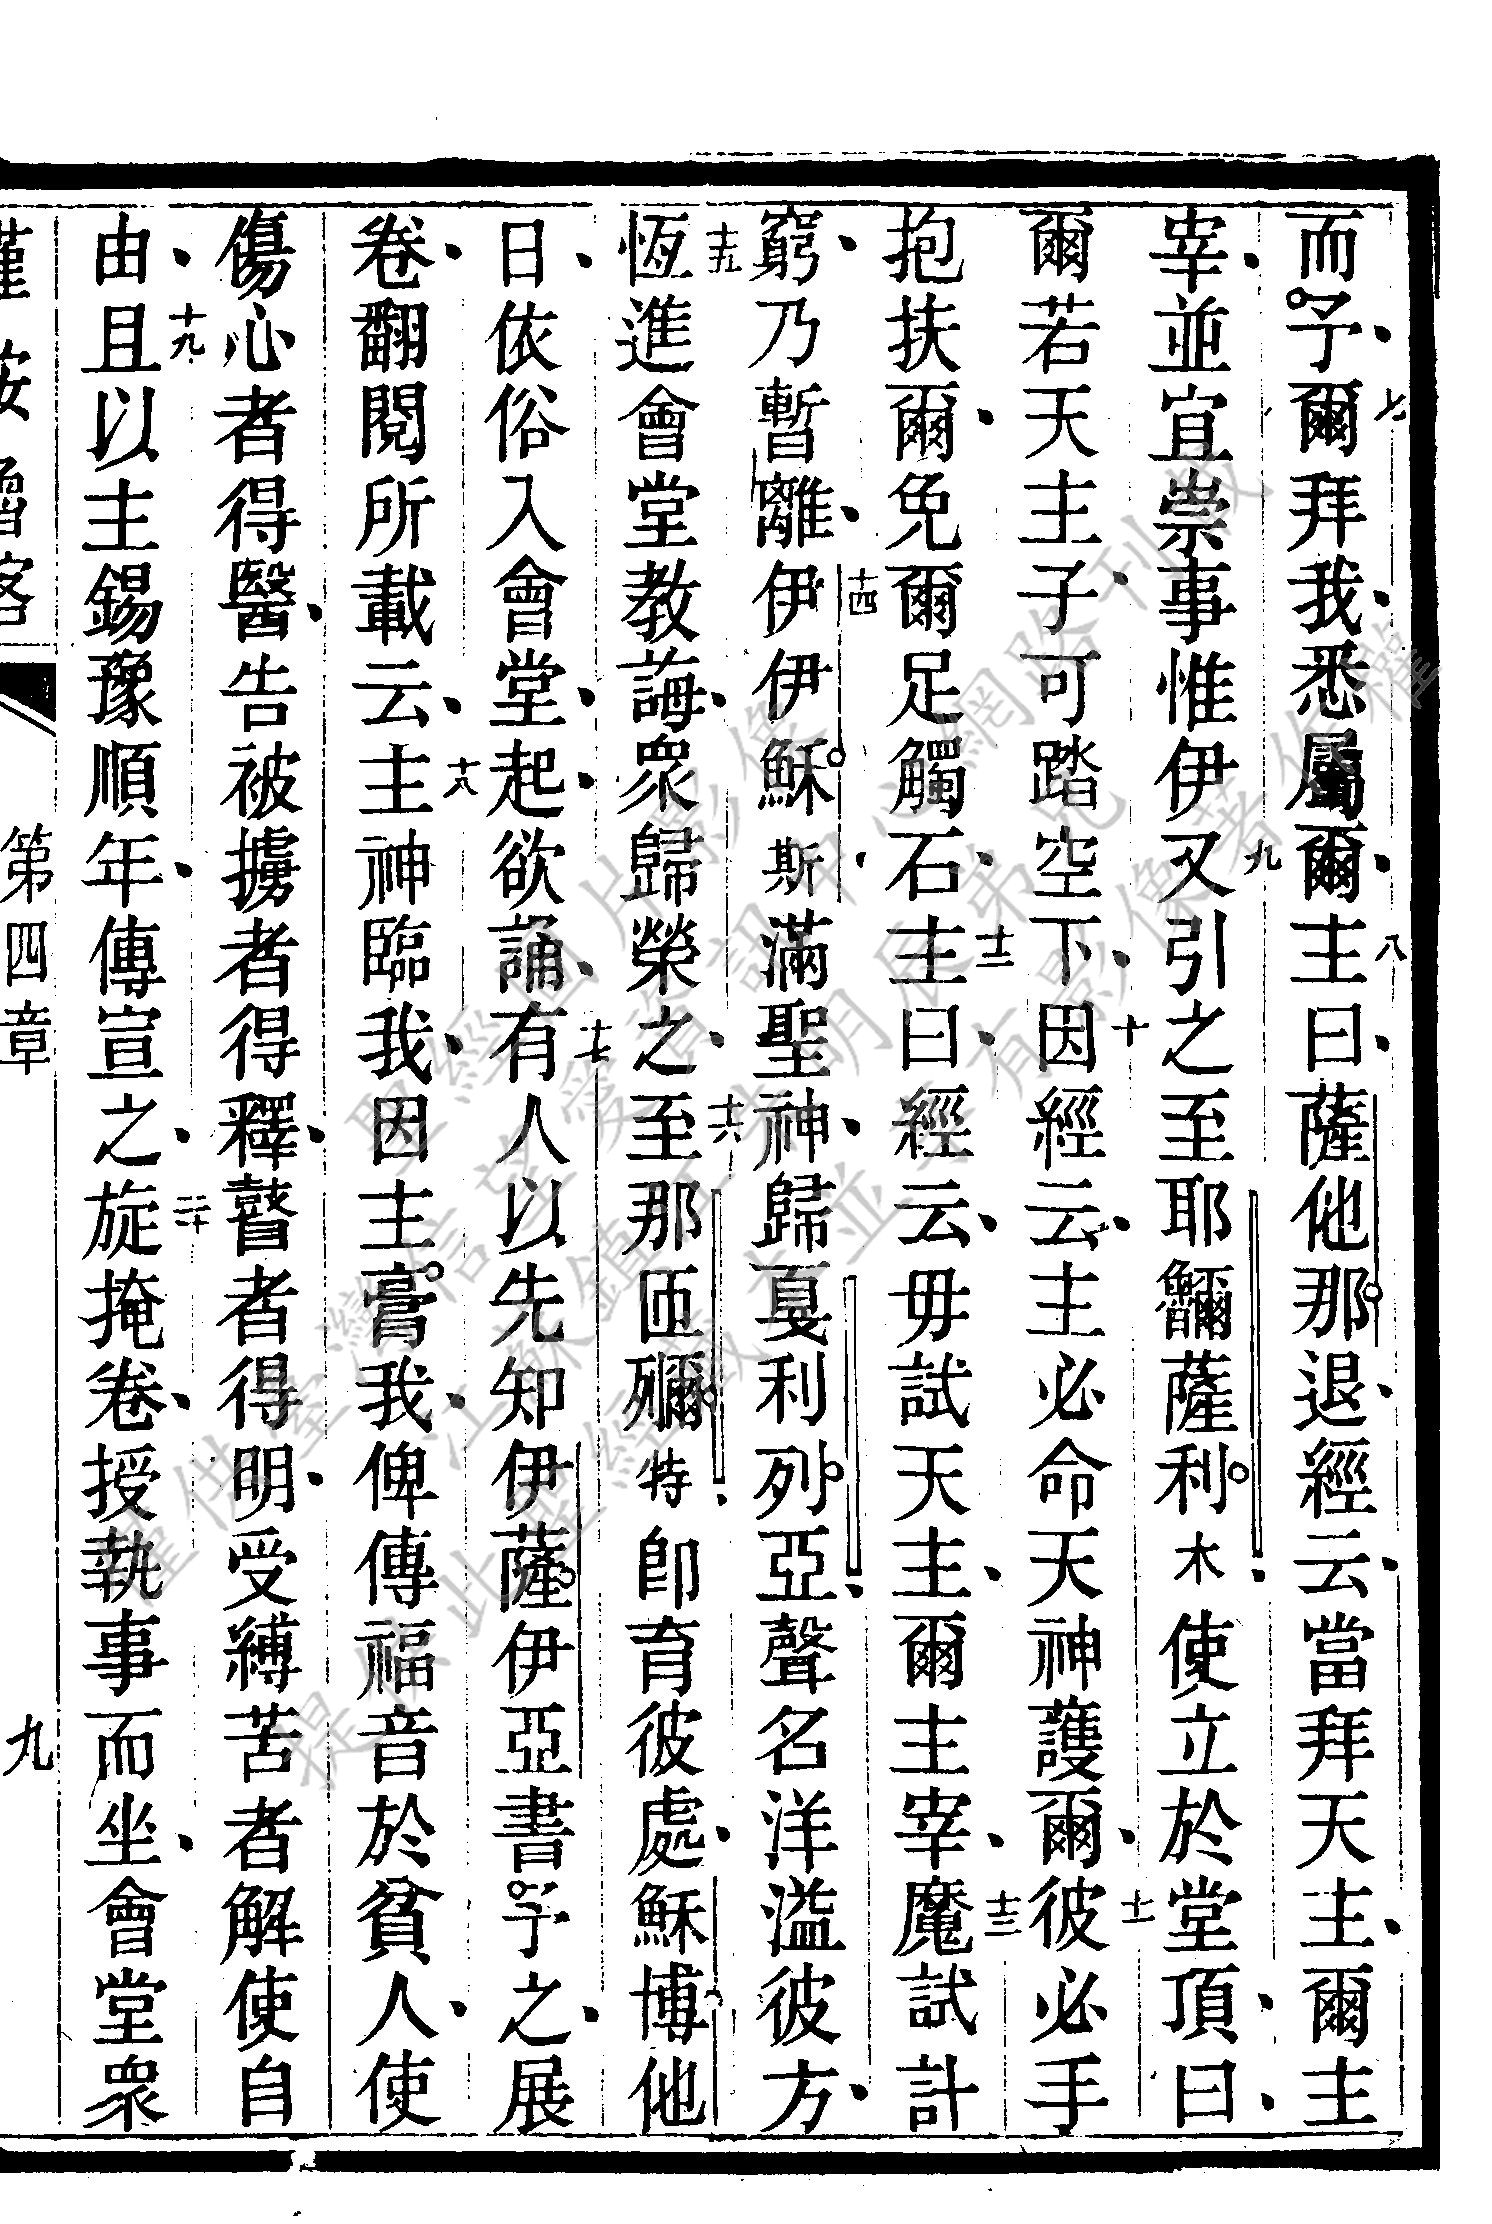 而予爾七拜我悉屬爾主八曰薩他那退經云當拜天主爾主
宰並宜崇事惟伊又九引之至耶䥯薩利木使立於堂頂曰
爾若天主子可踏空下因十經云主必命天神護爾彼十一必手
抱扶爾免爾足觸石主十二曰經云毋試天主爾主宰魔十三試計
窮乃暫離伊十四伊穌斯滿聖神歸戛利列亞聲名洋溢彼方
恆十五進會堂教誨眾歸榮之至十六那匝彌特卽育彼處穌博他
日依俗入會堂起欲誦有十七人以先知伊薩伊亞書予之展
卷翻閱所載云主十八神臨我因主膏我俾傳福音於貧人使
傷心者得醫告被擄者得釋瞽者得明受縛苦者解使自
由且十九以主錫豫順年傳宣之旋二十掩卷授執事而坐會堂眾
第四章
九